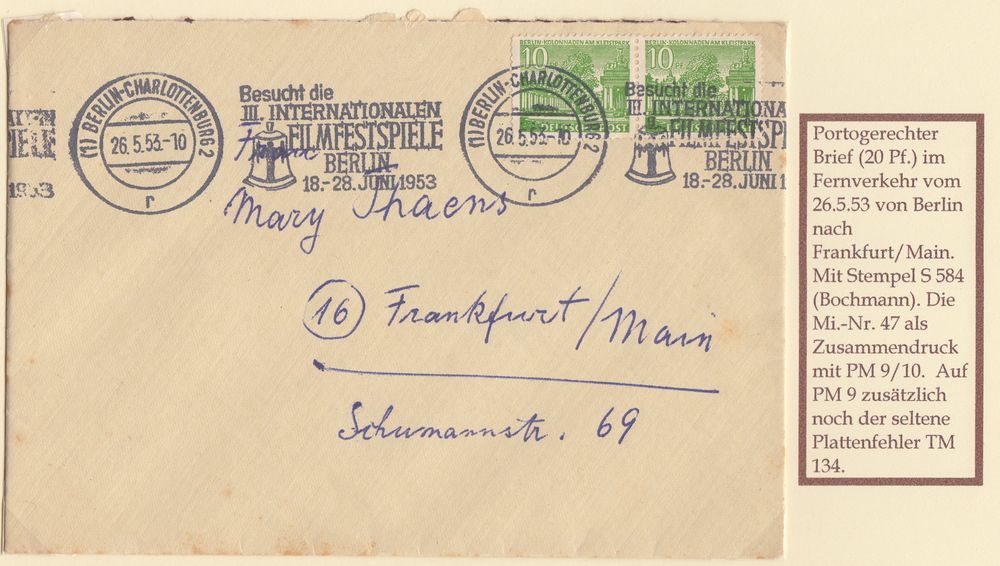 BERLIN-KOLONNADEN AM KLEISTPARK
10 PF
DEUTSCHE POST
BERLIN-KOLONNADEN AM KLEISTPARK
10 PF
POST
(1) BERLIN-CHARLOTTENBURG 2
26.5.53.-10
r
Besucht die
III. INTERNATIONALEN
FILMFESTSPIELE
BERLIN
18.-28. JUNI 1953
(1) BERLIN-CHARLOTTENBURG 2
26.5.53.-10
r
Besucht die
III. INTERNATIONA
FILMFESTSPIELE
BERLIN
18.-28. JUNI 1
IELE
1953
Mary Thaens
16 Frankfurt/Main
Schumannstr. 69
Portogerechter
Brief (20 Pf.) im
Fernverkehr vom
26.5.53 von Berlin
nach
Frankfurt/Main.
Mit Stempel S 584
(Bochmann). Die
Mi.-Nr. 47 als
Zusammendruck
mit PM 9/10. Auf
PM 9 zusätzlich
noch der seltene
Plattenfehler TM
134.